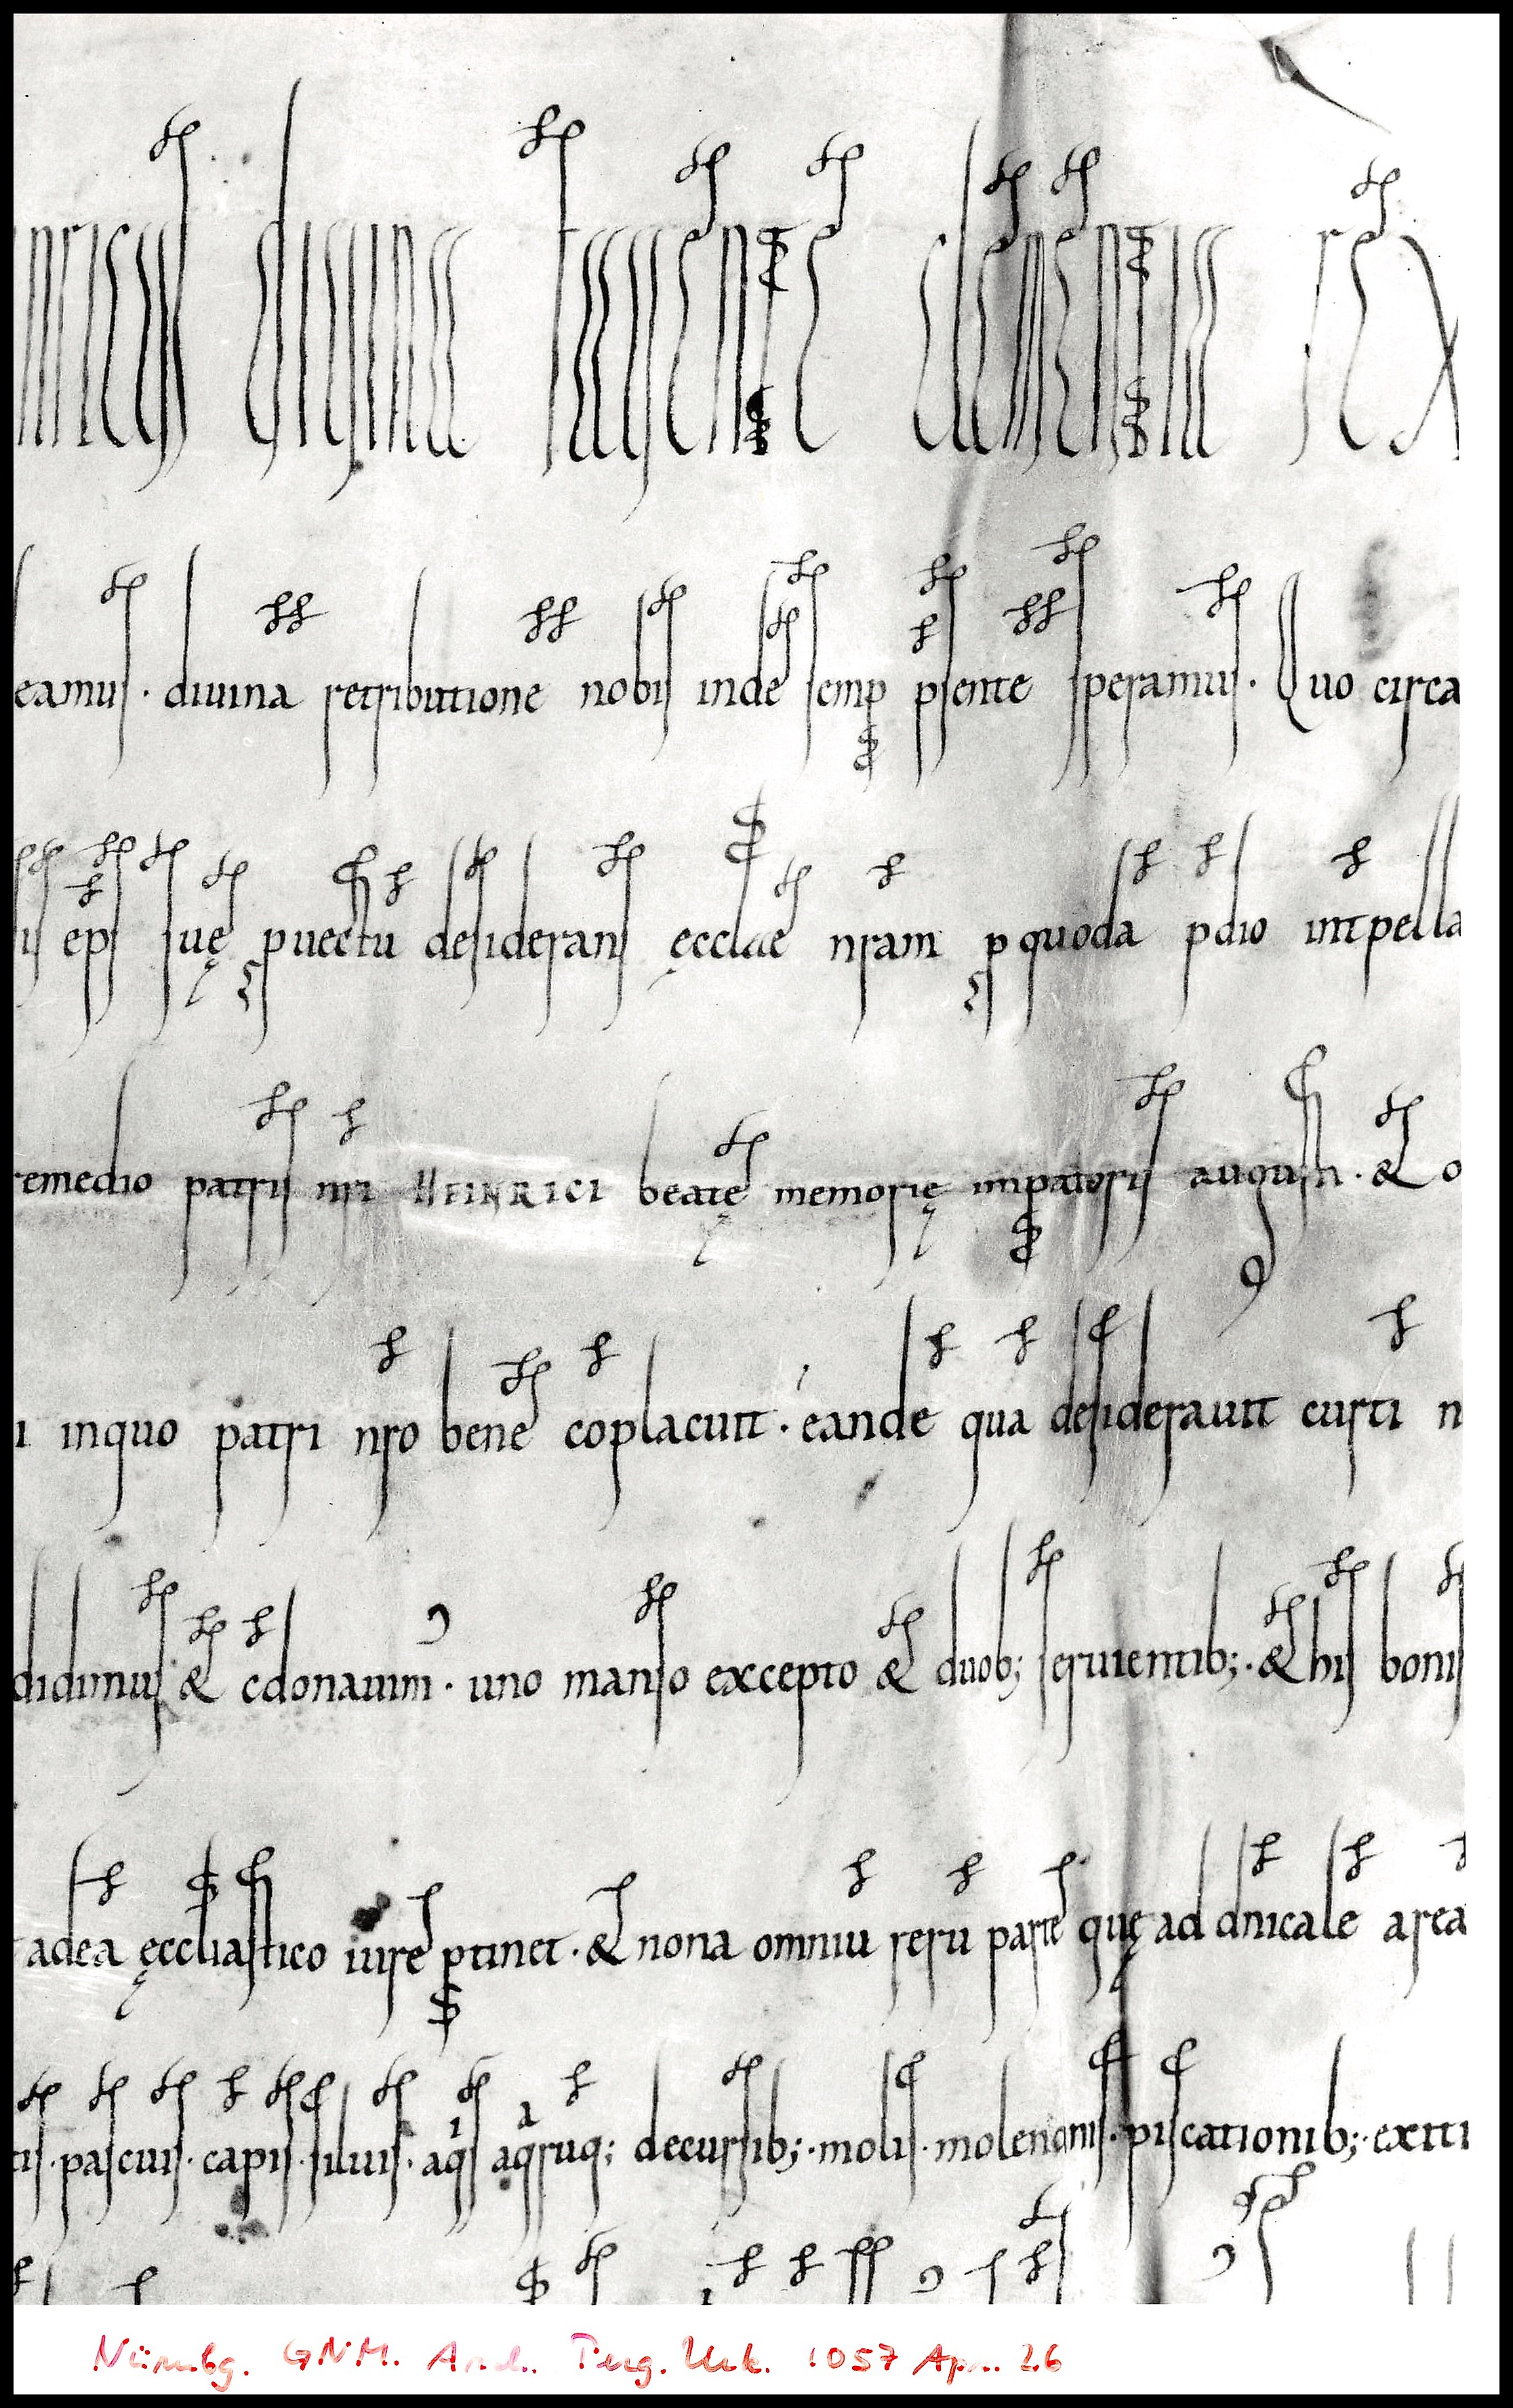 inricus divina favente clementia rex
eamus · divina retributione nobis inde semp psente speramus · Quo circa
is eps suę puectu desiderans ęcclae nram p quoda pdio intpella
remedio patris nri HEINRICI beatę memorię impatoris augusti · & o
i inquo patri nro bene coplacuit · eande qua desideravit curti n
didimus & cdonavim · uno manso excepto & duob; servientib; · & his bonis
adea ęccliastico iure ptinet · & nona omniu reru parte quę ad dnicale area
tis · pascuis · capis · silvis · aqis aqruq; decursib; · molis · molendinis · piscationib; · exiti
Nürnbg. GNM. Arch. Perg. Urk. 1057 Apr. 26